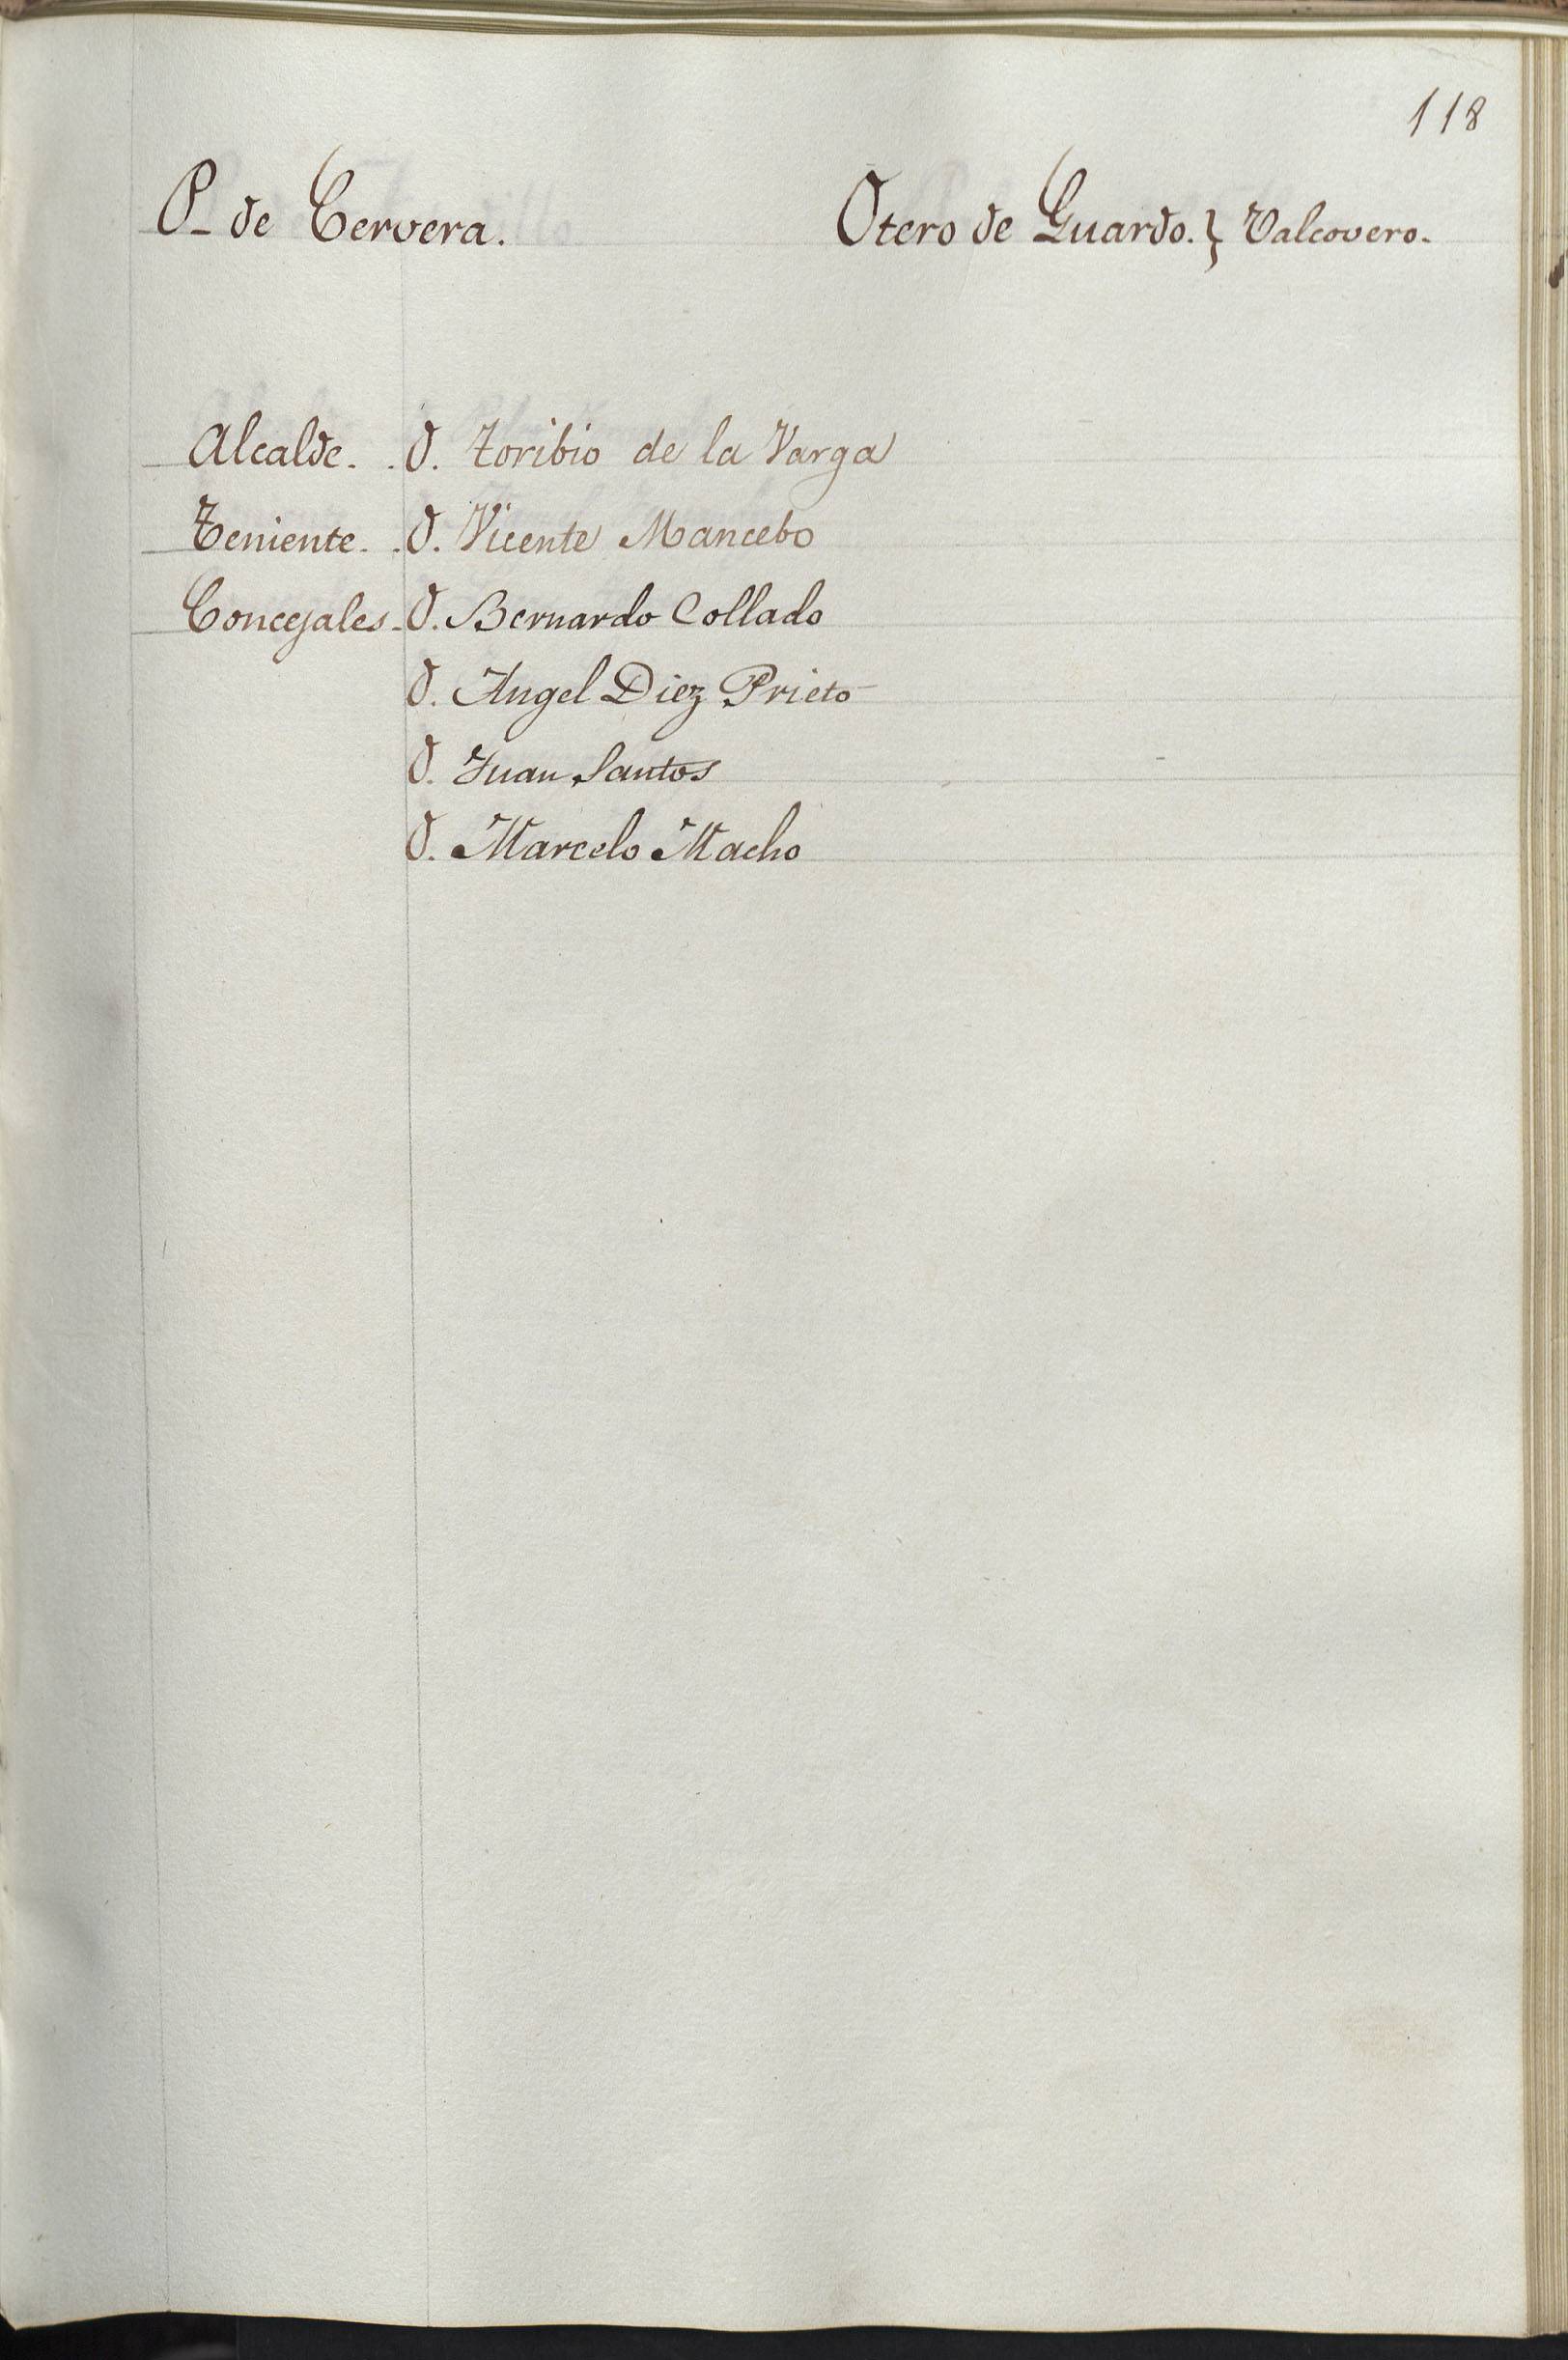 118
P- de Cervera. Otero de Guardo. } Valcovero.
Alcalde. . D. Toribio de la Varga
Teniente. . D. Vicente Mancebo
Concejales - D. Bernardo Collado
D. Angel Diez Prieto
D. Juan Santos
D. Marcelo Macho